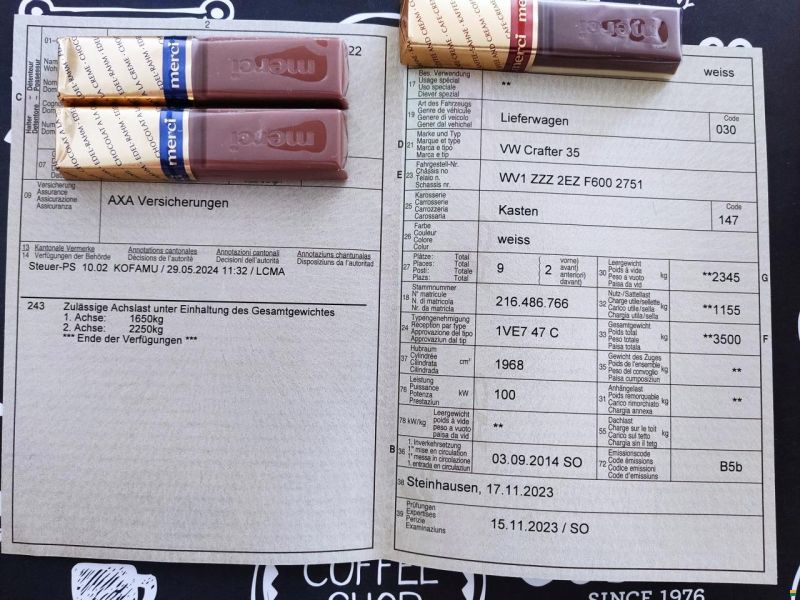 2
01-
22
C
Detenteur
Possessur
Halter
Detentore
07
09
Versicherung
Assurance
Assicurazione
Assicuranza
AXA Versicherungen
13 Kantonale Vermerke Annotations cantonales Annotazioni cantonali Annotaziuns chantunalas
14 Verfügungen der Behörde Décisions de l'autorité Decisioni dell'autorità Disposiziuns da l'autoritad
Steuer-PS 10.02 KOFAMU / 29.05.2024 11:32 / LCMA
243 Zulässige Achslast unter Einhaltung des Gesamtgewichtes
1. Achse: 1650kg
2. Achse: 2250kg
*** Ende der Verfügungen ***
merci
merci
merci
merci
merci
weiss
17
Bes. Verwendung
Usage spécial
Uso speciale
Diever spezial
**
19
Art des Fahrzeugs
Genre de véhicule
Genere di veicolo
Gener dal vehichel
Lieferwagen
Code
030
D
21
Marke und Typ
Marque et type
Marca e tipo
Marca e tip
VW Crafter 35
E
23
Fahrgestell-Nr.
Châssis no
Telaio n.
Schassis nr.
WV1 ZZZ 2EZ F600 2751
25
Karosserie
Carrosserie
Carrozzeria
Carossaria
Kasten
Code
147
26
Farbe
Couleur
Colore
Colur
weiss
27
Plätze: Total
Places: Total
Posti: Totale
Plazs: Total
9
2
vorne)
avant)
anteriori)
davant)
30
Leergewicht
Poids à vide
Peso a vuoto
Paisa da vid
kg
**2345
G
18
Stammnummer
N° matricule
N. di matricola
Nr. da matricla
216.486.766
32
Nutz-/Sattellast
Charge utile/sellette
Carico utile/sella
Chargia utila/sella
kg
**1155
24
Typengenehmigung
Réception par type
Approvazione del tipo
Approvaziun dal tip
1VE7 47 C
33
Gesamtgewicht
Poids total
Peso totale
Paisa totala
kg
**3500
F
37
Hubraum
Cylindrée
Cilindrata
Cilindrada
cm³
1968
35
Gewicht des Zuges
Poids de l'ensemble
Peso del convoglio
Paisa cumposiziun
kg
**
76
Leistung
Puissance
Potenza
Prestaziun
kW
100
31
Anhängelast
Poids remorquable
Carico rimorchiato
Chargia annexa
kg
**
78 kW/kg
Leergewicht
poids à vide
peso a vuoto
paisa da vid
**
55
Dachlast
Charge sur le toit
Carico sul tetto
Chargia sin il tetg
kg
B
36
1. Inverkehrsetzung
1re mise en circulation
1a messa in circolazione
1. entrada en circulaziun
03.09.2014 SO
72
Emissionscode
Code émissions
Codice emissioni
Code d'emissiuns
B5b
38
Steinhausen, 17.11.2023
39
Prüfungen
Expertises
Perizie
Examinaziuns
15.11.2023 / SO
COFFEE
SHOP
SINCE 1976